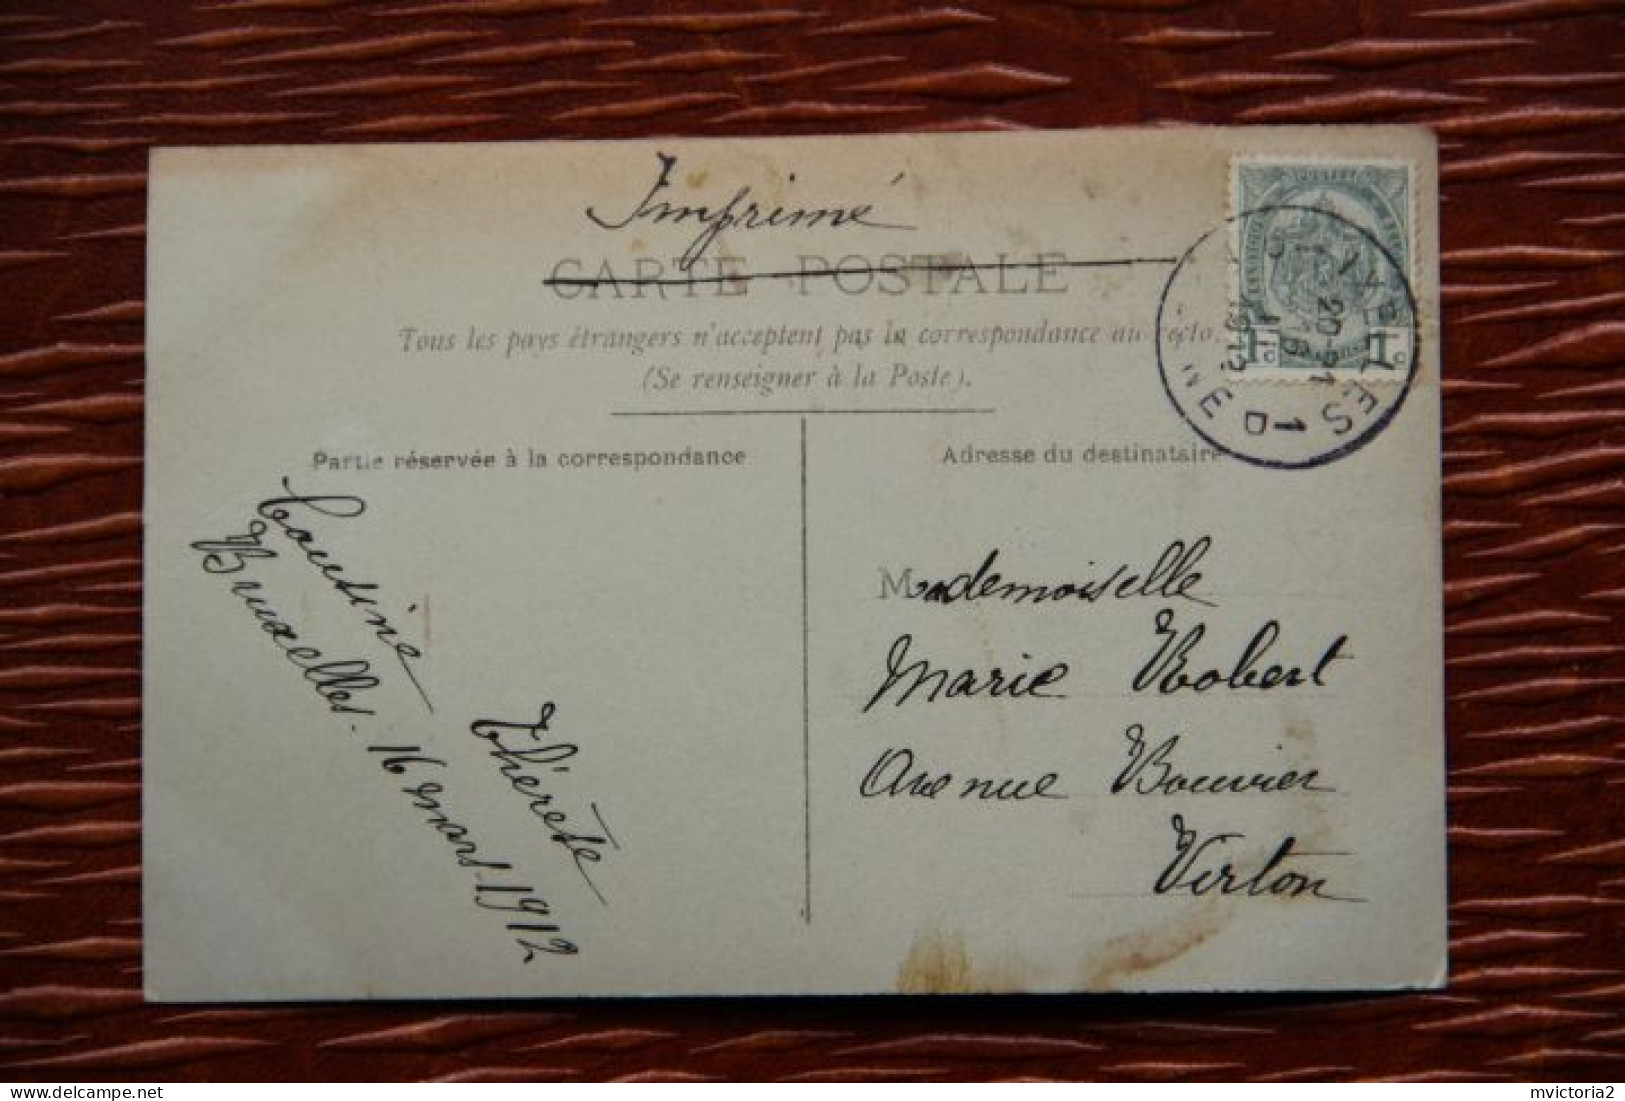 Imprimé
CARTE POSTALE
Tous les pays étrangers n'acceptent pas la correspondance au recto.
(Se renseigner à la Poste).
Partie réservée à la correspondance
Adresse du destinataire
Cousine
Thérèse
Bruxelles. 16 mars 1912
Mademoiselle
Marie Robert
Avenue Bouvier
Virton
1c 1c
1912
delcampe.net
mvictoria2